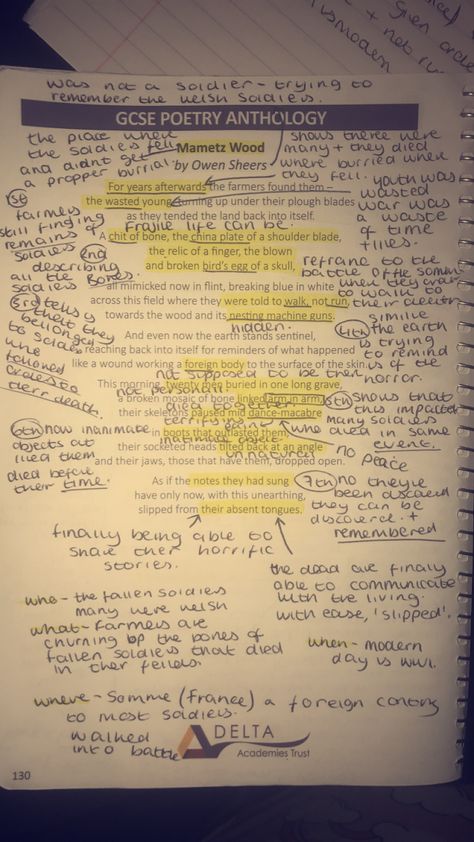 was not a soldier - trying to
remember the welsh soldiers.
GCSE POETRY ANTHOLOGY
Mametz Wood
by Owen Sheers
the place where
the soldiers fell
and didnt get
a propper burrial.
shows there were
many + they died
where burried when
they fell.
youth was
wasted
war was
a waste
of time
+ lives.
For years afterwards the farmers found them –
the wasted young, turning up under their plough blades
as they tended the land back into itself.
1st
farmers
still finding
remains of
soldiers
Fragile life can be.
A chit of bone, the china plate of a shoulder blade,
the relic of a finger, the blown
and broken bird's egg of a skull,
2nd
describing
all the bones.
soldiers
refrane to the
battle of the somme
when they were
to walk to
all mimicked now in flint, breaking blue in white
across this field where they were told to walk, not run,
towards the wood and its nesting machine guns.
hidden.
3rd tells
that they
belonged
to soldiers
who
followed
orders to
their death.
And even now the earth stands sentinel,
reaching back into itself for reminders of what happened
like a wound working a foreign body to the surface of the skin.
4th
similie
the earth
is trying
to remind
us of the
horror.
not supposed to be there
This morning, twenty men buried in one long grave,
not personall
a broken mosaic of bone linked arm in arm,
died together
their skeletons paused mid dance-macabre
terrifying
5th shows that
this impacted
many soldiers
who died in same
event.
in boots that outlasted them,
inatimate object
their socketed heads tilted back at an angle
unnatural
and their jaws, those that have them, dropped open.
no peace
6th now inanimate
objects out
lived them
died before
their time.
As if the notes they had sung
have only now, with this unearthing,
slipped from their absent tongues.
7th no they're
been discoverd
they can be
discoverd. +
remembered
finally being able to
share their horrific
stories.
the dead are finally
able to communicate
with the living.
with ease, 'slipped'.
who - the fallen soldiers
many were welsh
what - farmers are
churning up the bones of
fallen soldiers that died
in their fields.
when - modern
day is ww1.
where - Somme (France) a foreign contry
to most soldiers.
walked
into battle
DELTA
Academies Trust
130